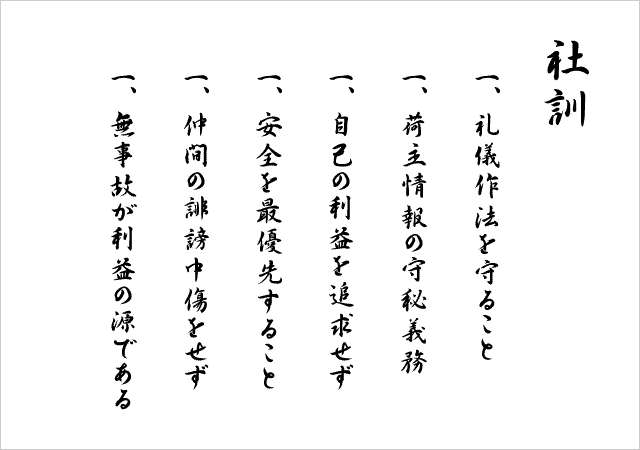 社訓
一、礼儀作法を守ること
一、荷主情報の守秘義務
一、自己の利益を追求せず
一、安全を最優先すること
一、仲間の誹謗中傷をせず
一、無事故が利益の源である